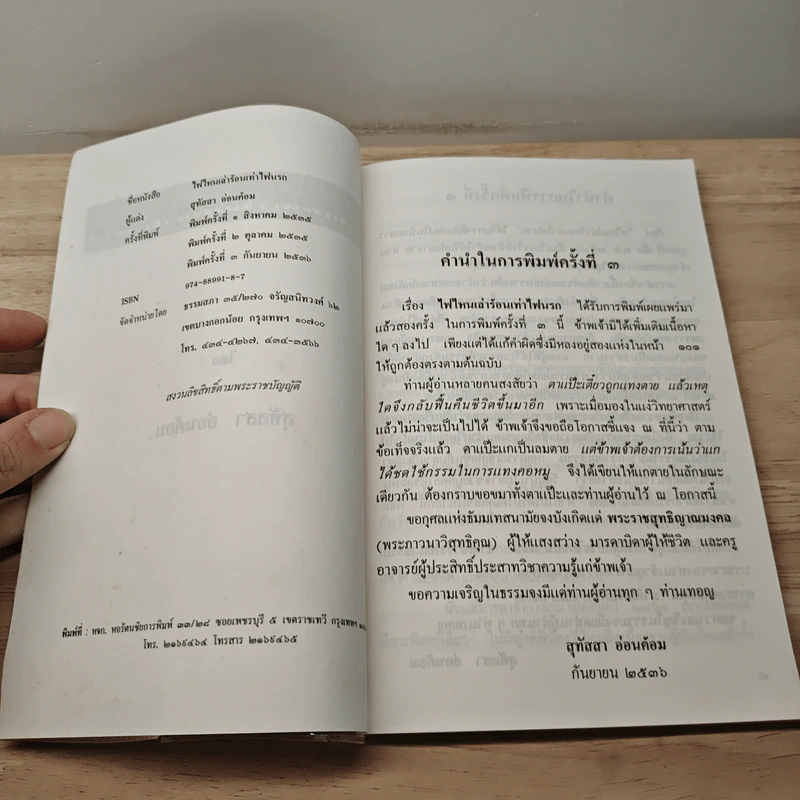 ชื่อหนังสือ ไฟไหนเล่าร้อนเท่าไฟนรก
ผู้แต่ง สุทัสสา อ่อนค้อม
ครั้งที่พิมพ์ พิมพ์ครั้งที่ ๑ สิงหาคม ๒๕๓๕
พิมพ์ครั้งที่ ๒ ตุลาคม ๒๕๓๕
พิมพ์ครั้งที่ ๓ กันยายน ๒๕๓๖
ISBN 974-88991-8-7
จัดจำหน่ายโดย ธรรมสภา ๓๕/๒๗๐ จรัญสนิทวงศ์ ๖๒
เขตบางกอกน้อย กรุงเทพฯ ๑๐๗๐๐
โทร. ๔๓๔-๔๒๖๗, ๔๓๔-๓๕๖๖
สงวนลิขสิทธิ์ตามพระราชบัญญัติ
พิมพ์ที่ : หจก. หอรัตนชัยการพิมพ์ ๓๓/๒๘ ซอยเพชรบุรี ๕ เขตราชเทวี กรุงเทพฯ
โทร. ๒๑๖๙๔๖๔ โทรสาร ๒๑๖๙๔๖๕
คำนำในการพิมพ์ครั้งที่ ๓
เรื่อง ไฟไหนเล่าร้อนเท่าไฟนรก ได้รับการพิมพ์เผยแพร่มา
แล้วสองครั้ง ในการพิมพ์ครั้งที่ ๓ นี้ ข้าพเจ้ามิได้เพิ่มเติมเนื้อหา
ใด ๆ ลงไป เพียงแต่ได้แก้คำผิดซึ่งมีหลงอยู่สองแห่งในหน้า ๑๐๑
ให้ถูกต้องตรงตามต้นฉบับ
ท่านผู้อ่านหลายคนสงสัยว่า ตาแป๊ะเตี๋ยวถูกแทงตาย แล้วเหตุ
ใดจึงกลับฟื้นคืนชีวิตขึ้นมาอีก เพราะเมื่อมองในแง่วิทยาศาสตร์
แล้วไม่น่าจะเป็นไปได้ ข้าพเจ้าจึงขอถือโอกาสชี้แจง ณ ที่นี้ว่า ตาม
ข้อเท็จจริงแล้ว ตาแป๊ะแกเป็นลมตาย แต่ข้าพเจ้าต้องการเน้นว่าแก
ได้ชดใช้กรรมในการแทงคอหมู จึงได้เขียนให้แกตายในลักษณะ
เดียวกัน ต้องกราบขอขมาทั้งตาแป๊ะและท่านผู้อ่านไว้ ณ โอกาสนี้
ขอกุศลแห่งธัมมเทสนามัยจงบังเกิดแด่ พระราชสุทธิญาณมงคล
(พระภาวนาวิสุทธิคุณ) ผู้ให้แสงสว่าง มารดาบิดาผู้ให้ชีวิต และครู
อาจารย์ผู้ประสิทธิ์ประสาทวิชาความรู้แก่ข้าพเจ้า
ขอความเจริญในธรรมจงมีแด่ท่านผู้อ่านทุก ๆ ท่านเทอญ
สุทัสสา อ่อนค้อม
กันยายน ๒๕๓๖